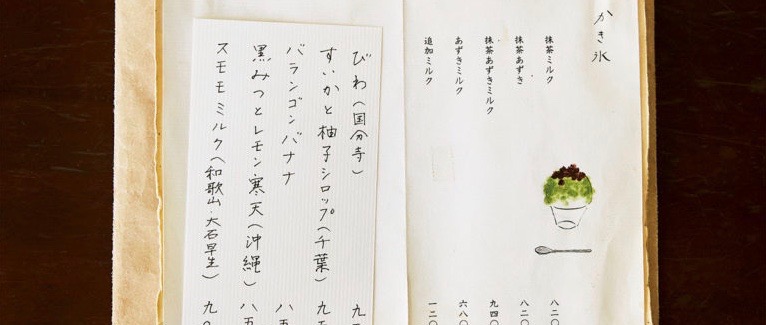 かき氷
抹茶ミルク 八二〇
抹茶あずき 八二〇
抹茶あずきミルク 九四〇
あずきミルク 六八〇
追加ミルク 一二〇
びわ(国分寺) 九
すいかと柚子シロップ(千葉) 九
バランゴンバナナ 八
黒みつとレモン寒天(沖縄) 八五
スモモミルク(和歌山・大石早生) 九